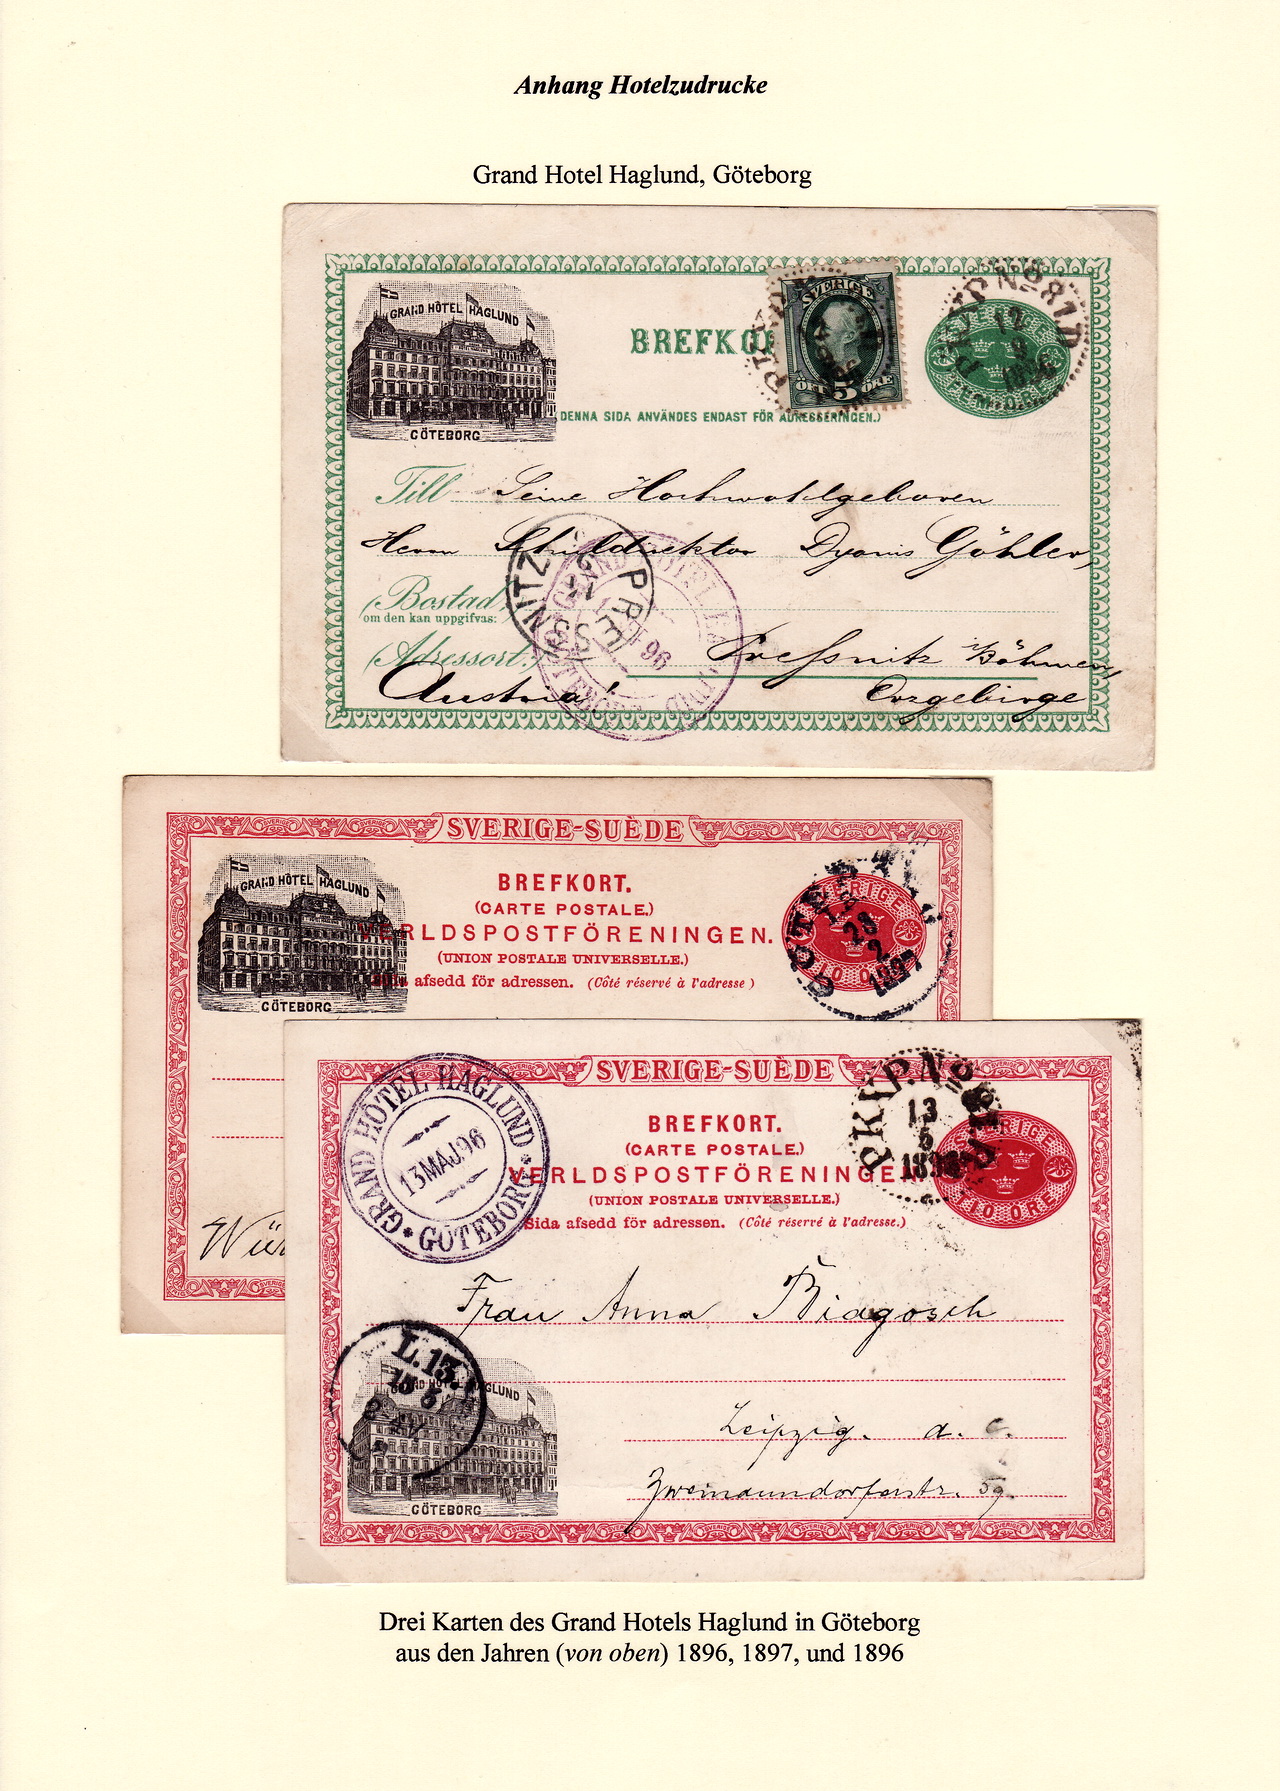 Anhang Hotelzudrucke
Grand Hotel Haglund, Göteborg
GRAND HÔTEL HAGLUND
GÖTEBORG
BREFKOR
(DENNA SIDA ANVÄNDES ENDAST FÖR ADRESSERINGEN.)
SVERIGE
ÖRE 5 ÖRE
PKXP. No 81
12
9
SVERIGE
FEM ÖRE
Till Seine Hochwohlgeboren
Herrn Schuldirektor Göhler,
(Bostad)
om den kan uppgifvas:
PRESSNITZ
GRAND HÔTEL
96
(Adressort:) Pressnitz Böhmen,
Austria! Erzgebirge
SVERIGE-SUÈDE
GRAND HÔTEL HAGLUND
GÖTEBORG
BREFKORT.
(CARTE POSTALE.)
VERLDSPOSTFÖRENINGEN.
(UNION POSTALE UNIVERSELLE.)
Sida afsedd för adressen. (Côté réservé à l'adresse)
SVERIGE
10 ÖRE
GÖTEBORG
28
2
1897
SVERIGE-SUÈDE
GRAND HÔTEL HAGLUND
13 MAJ. 96
* GÖTEBORG *
BREFKORT.
(CARTE POSTALE.)
VERLDSPOSTFÖRENINGEN
(UNION POSTALE UNIVERSELLE.)
Sida afsedd för adressen. (Côté réservé à l'adresse.)
PKXP. No
13
5
1896
SVERIGE
10 ÖRE
Wür
Frau Anna Biagosch
L. 13.
15 5
GRAND HÔTEL HAGLUND
GÖTEBORG
Leipzig. a. c.
Zweinaundorferstr. 59.
Drei Karten des Grand Hotels Haglund in Göteborg
aus den Jahren (von oben) 1896, 1897, und 1896